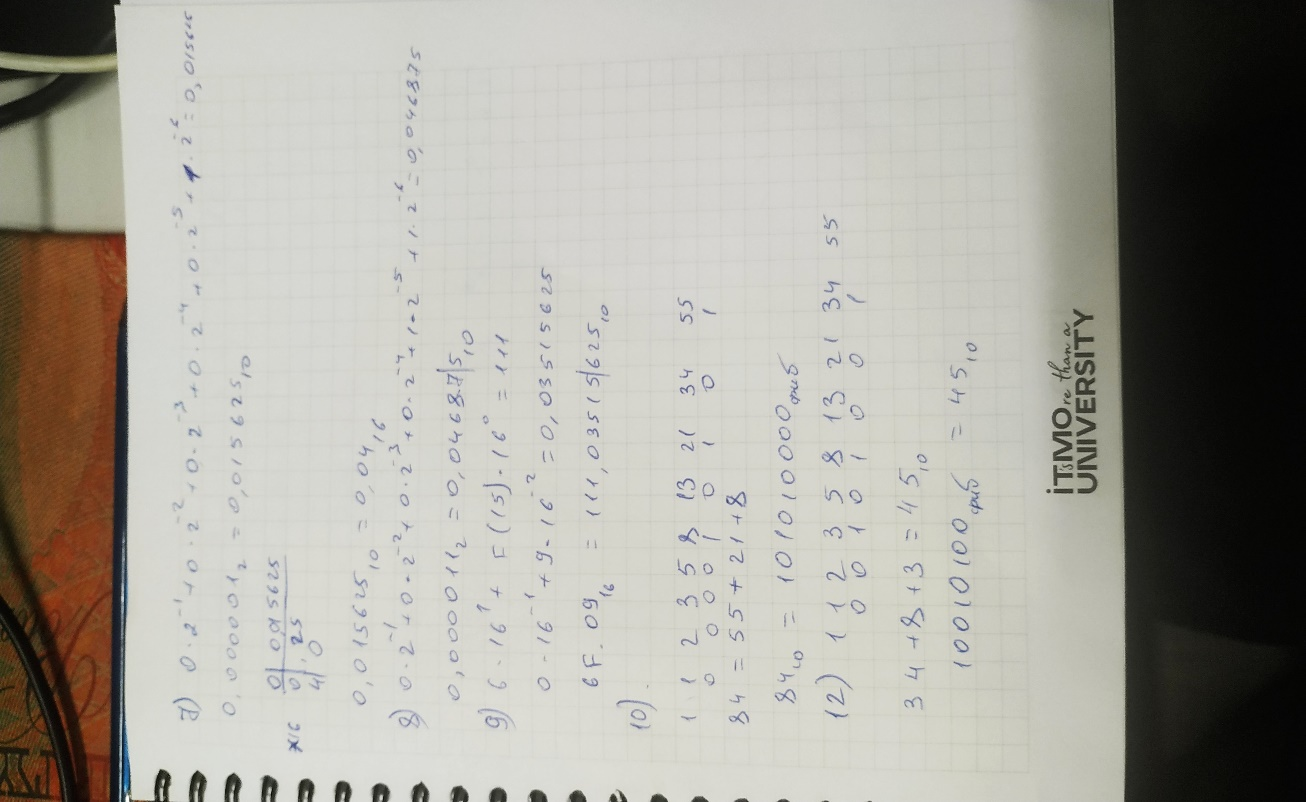 7) 0·2⁻¹+0·2⁻²+0·2⁻³+0·2⁻⁴+0·2⁻⁵+1·2⁻⁶=0,015625
0,000001₂ = 0,015625₁₀
0| 015625
×16 0| 25
4| 0
0,015625₁₀ = 0,04₁₆
8) 0·2⁻¹+0·2⁻²+0·2⁻³+0·2⁻⁴+1·2⁻⁵+1·2⁻⁶=0,046875
0,000011₂ = 0,046875₁₀
9) 6·16¹ + F(15)·16⁰ = 111
0·16⁻¹+9·16⁻²=0,03515625
6F.09₁₆ = 111,03515625₁₀
10).
1 1 2 3 5 8 13 21 34 55
0 0 0 0 1 0 1 0 1
84 = 55+21+8
84₁₀ = 101010000фиб
12) 1 1 2 3 5 8 13 21 34 55
0 0 1 0 1 0 0 1
34+8+3=45₁₀
10010100фиб = 45₁₀
iT's MOre than a
UNIVERSITY